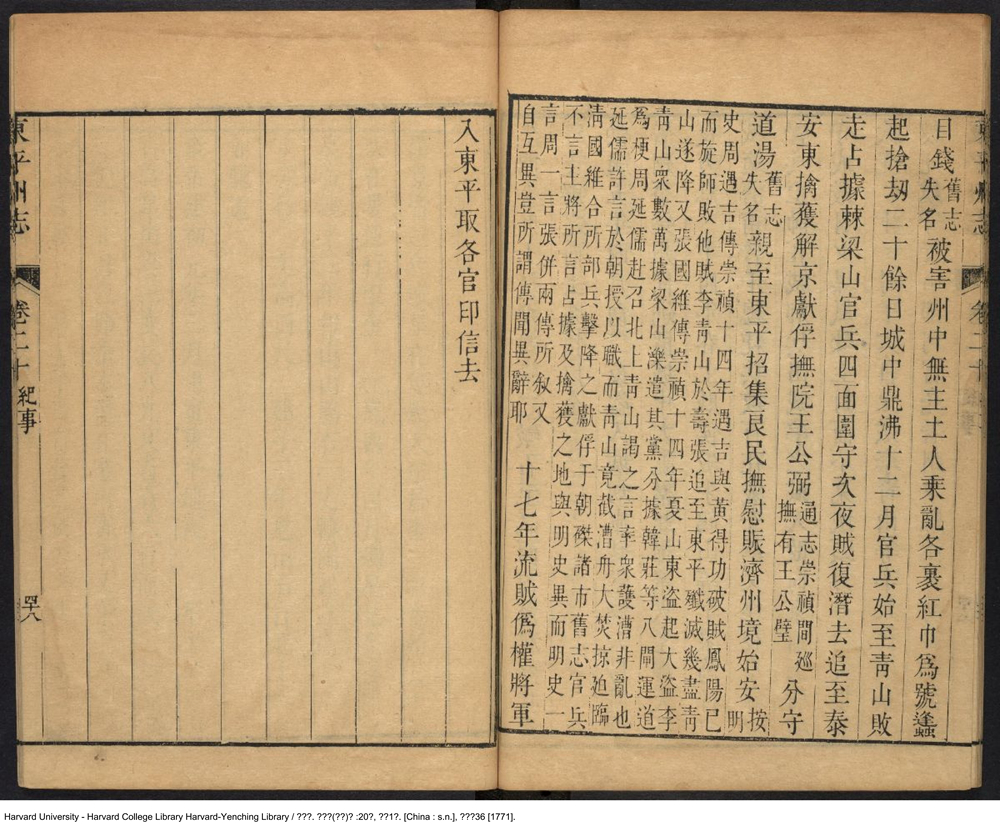 目錢舊志失名被害州中無主土人乘亂各裹紅巾爲號蠭
起搶刧二十餘日城中鼎沸十二月官兵始至靑山敗
走占據棘梁山官兵四面圍守次夜賊復潛去追至泰
安東擒獲解京獻俘撫院王公弼通志崇禎間巡撫有王公璧分守
道湯舊志失名親至東平招集良民撫慰賑濟州境始安按明
史周遇吉傳崇禎十四年遇吉與黃得功破賊鳳陽已
而旋師敗他賊李靑山於壽張追至東平殲滅幾盡靑
山遂降又張國維傳崇禎十四年夏山東盜起大盜李
靑山衆數萬據梁山濼遣其黨分據韓莊等八閘運道
爲梗周延儒赴召北上靑山謁之言率衆護漕非亂也
延儒許言於朝授以職而靑山竟截漕舟大焚掠迫臨
淸國維合所部兵擊降之獻俘于朝磔諸市舊志官兵
不言主將所言占據及擒獲之地與明史異而明史一
言周一言張併兩傳所叙又
自互異豈所謂傳聞異辭耶 十七年流賊僞權將軍
入東平取各官印信去
東平州志 卷二十 紀事 四十八
Harvard University - Harvard College Library Harvard-Yenching Library / ???. ???(??)? :20?, ??1?. [China : s.n.], ???36 [1771].